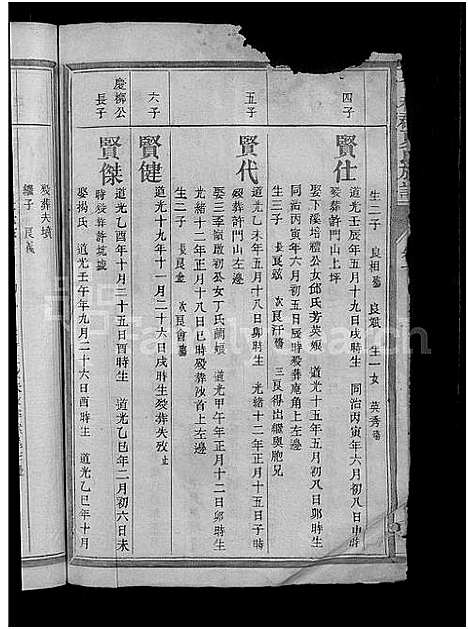 生二子 長良相 次良 生一女 英秀
四子
賢仕 道光壬辰年五月十九日戌時生 同治丙寅年六月初八日申時
歿葬許門山上坪
娶下溪培禮公女邱氏芳英娘 道光十五年五月初八日卯時生
同治丙寅年六月初五日辰時歿葬庵角上左邊
生三子 長良 次良汗 三良得出繼與胞兄
五子
賢代 道光乙未年五月十八日卯時生 光緒十二年正月十五日子時
歿葬許門山左邊
娶三季嶺啟初公女丁氏蘭娘 道光甲午年正月十二日卯時生
光緒十二年正月十八日巳時歿葬沙首上左邊
生二子 長良金 次良會
六子
賢健 道光十九年十一月二十六日戌時生歿葬失攷止
慶柳公長子
賢傑 道光乙酉年十月二十五日酉時生 道光乙巳年二月初六日未
時歿葬許坑壢
娶楊氏 道光壬午年九月二十六日酉時生 道光乙巳年十月
歿葬失墳
繼子 良義